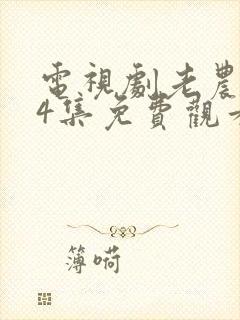 電視劇老農
4集免費觀看
簿嗬